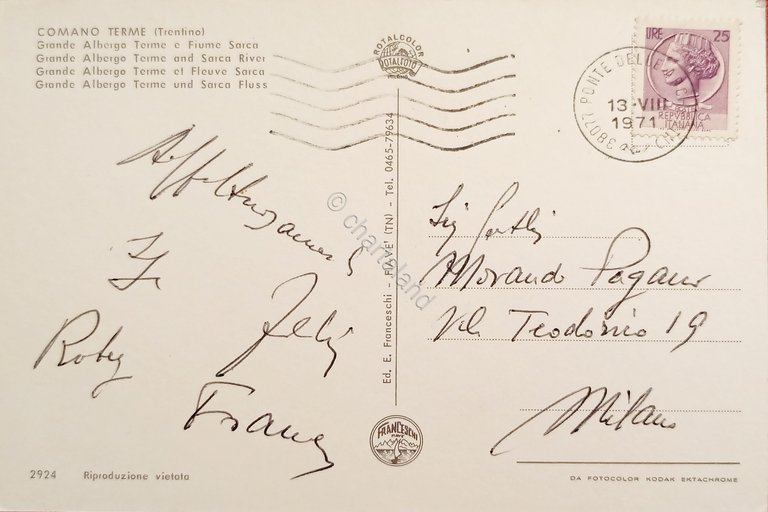 COMANO TERME (Trentino)
Grande Albergo Terme e Fiume Sarca
Grande Albergo Terme and Sarca River
Grande Albergo Terme et Fleuve Sarca
Grande Albergo Terme und Sarca Fluss
ROTALCOLOR
ROTALFOTO
MILANO
LIRE 25
REPVBBLICA
ITALIANA
38077 PONTE DELLE ARCHE
13-VIII
1971
Affettuosamente
Roby
Franco
Ed. E. Franceschi - FIAVE' (TN) - Tel. 0465-79634
© chartaland
Morando Pagani
Teodorico 19
Milano
FRANCESCHI
FIAVE
2924 Riproduzione vietata
DA FOTOCOLOR KODAK EKTACHROME